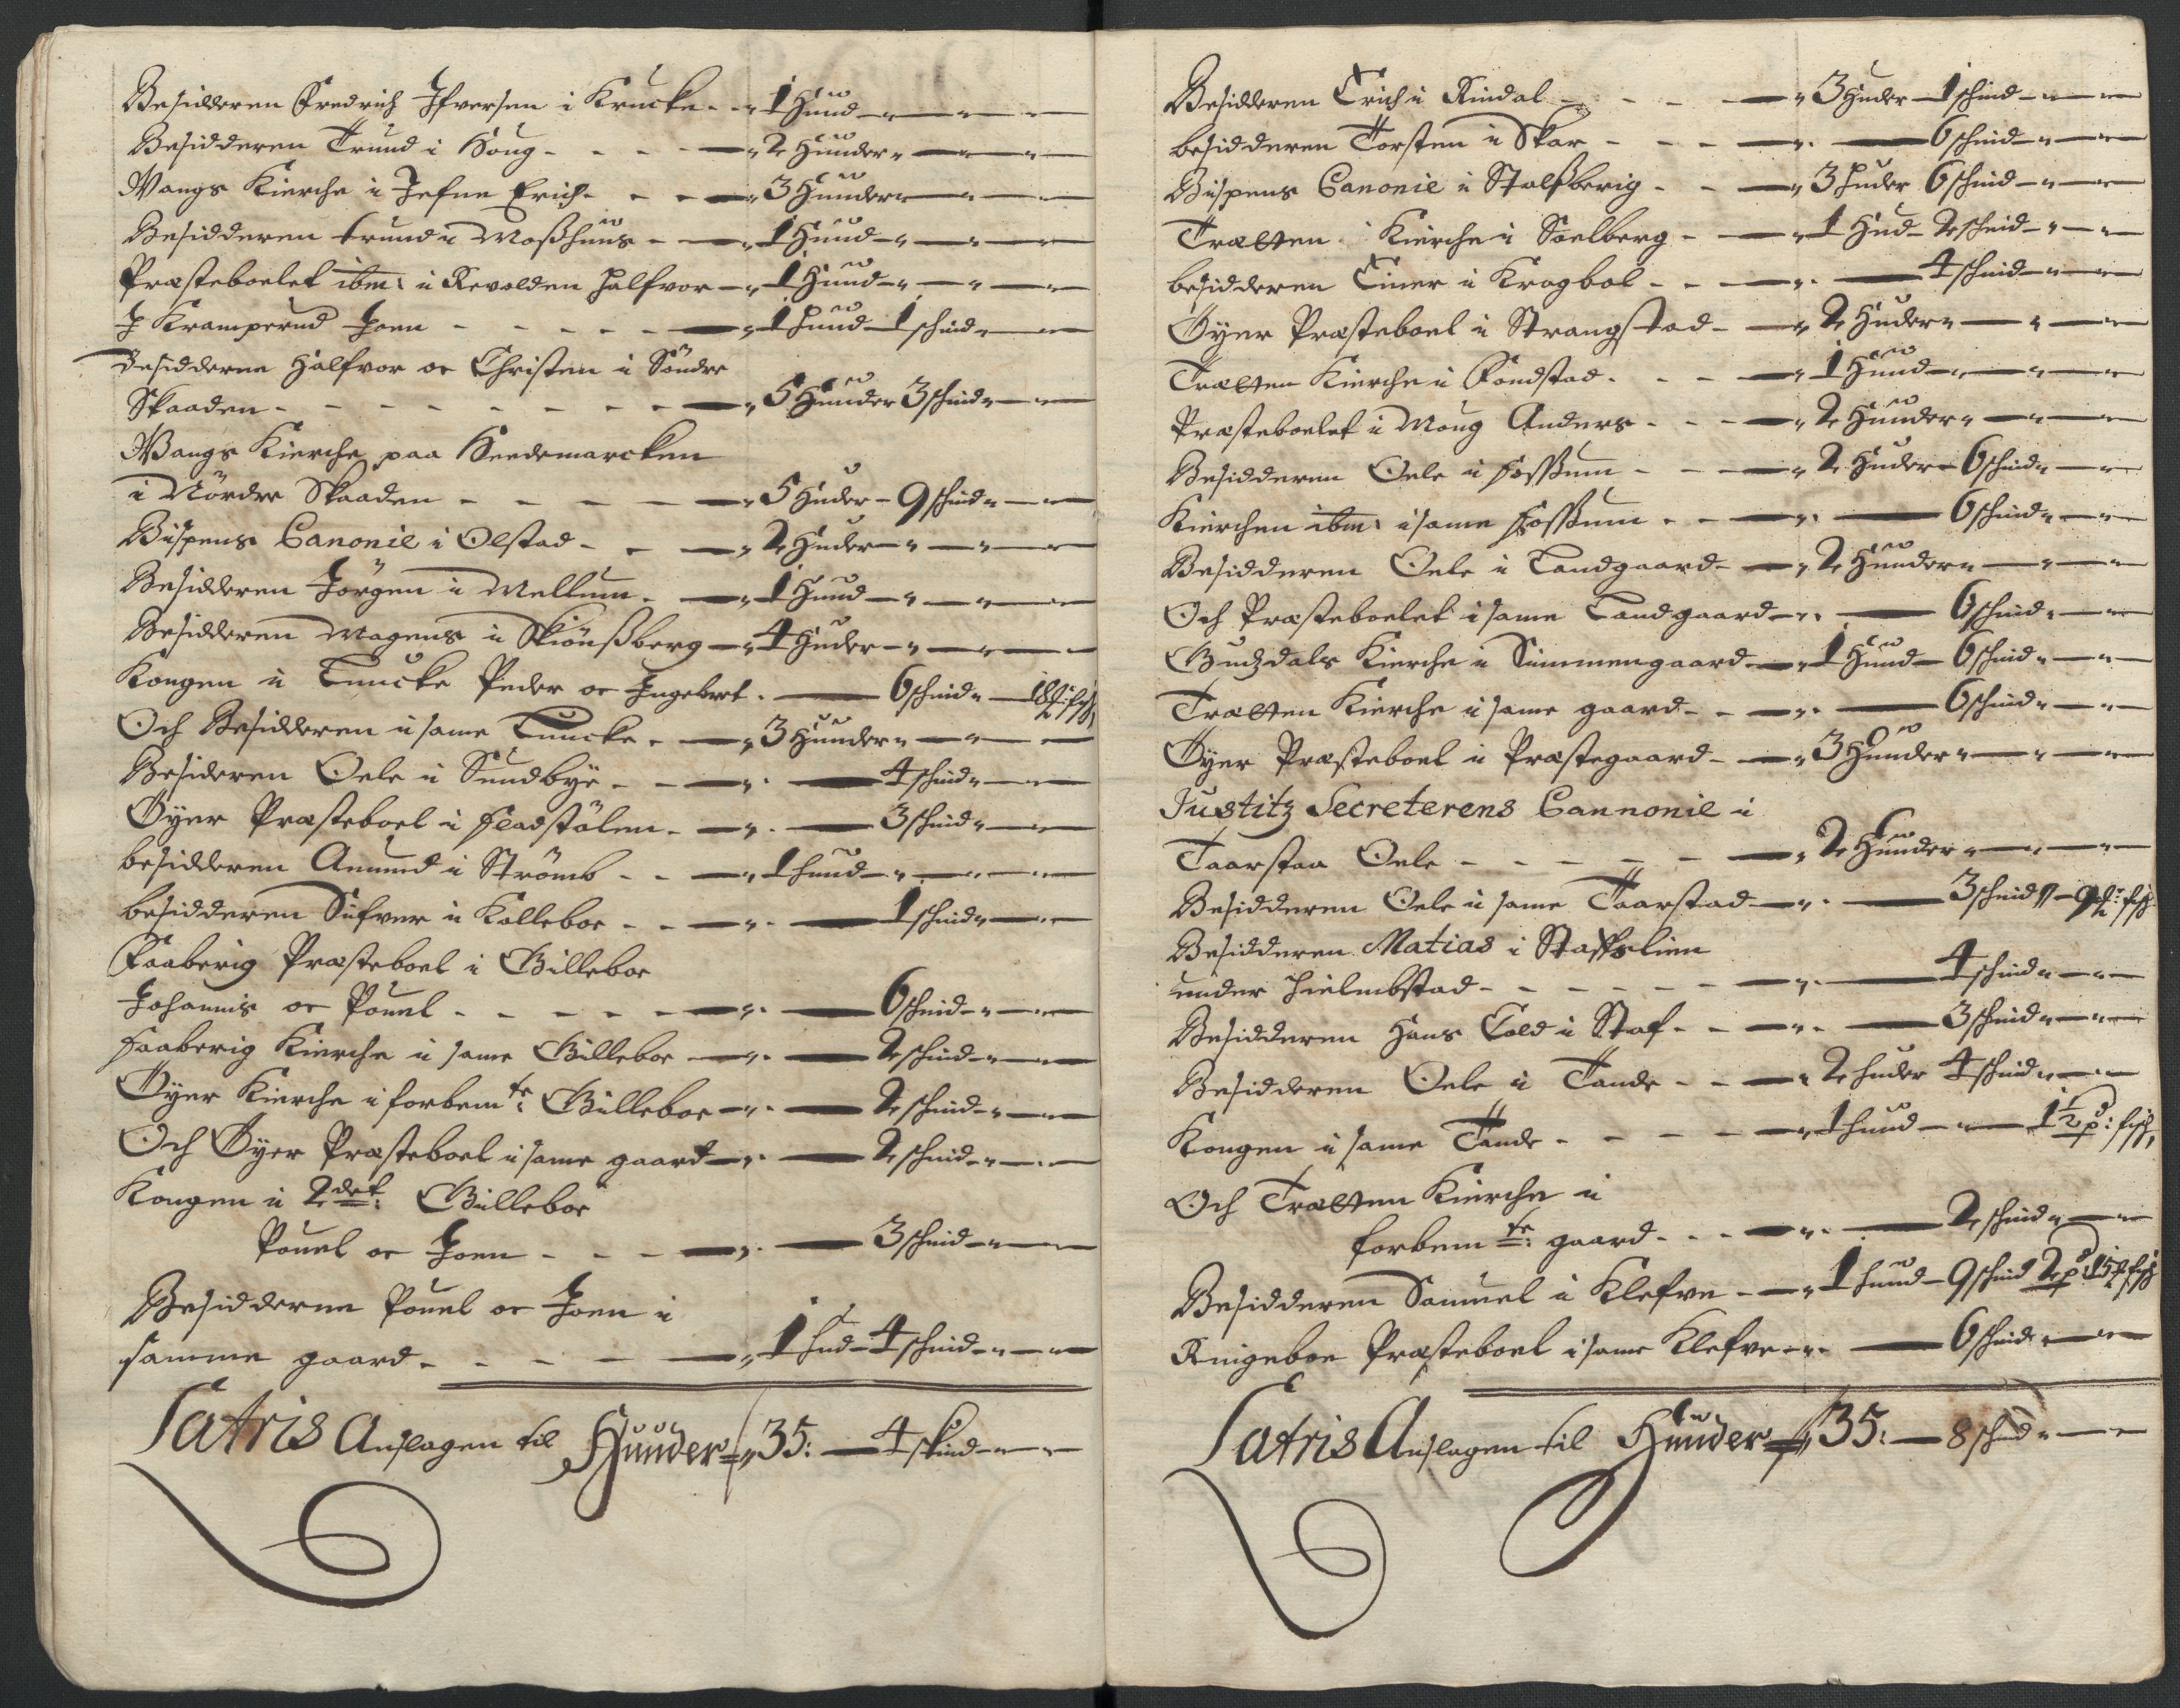 Besidderen Fredrich Ifversen i Krucke - - 1 Huud
Besidderen Trund i Houg - - - - 2 Huuder
Wangs Kierche i Jefne Erich - - - 3 Huuder
Besidderen trund i Moßhuus - - 1 Huud
Præsteboelet ibm: i Revolden Halfvor - 1 Huud
J Kramperud Joen - - - - - 1 Huud 1 schind
Besidderne Halfvor oc Christen i Söndre
Skaaden - - - - - - - - 5 Huuder 3 schind
Wangs Kierche paa Heedemarcken
i Nördre Skaaden - - - - - 5 Huder - 9 schind
Bispens Canonie i Olstad - - - 2 Huder
Besidderen Jörgen i Mellum - - 1 Huud
Besidderen Magens i Skiönßberg - 4 Huder
Kongen i Tuucke Peder oc Ingebret - 6 schind
Och Besidderen i same Tuucke - - 3 Huuder
Besideren Oele i Sundbye - - - 4 schind
Öyer Præsteboel i Fladstölen - - 3 schind
besidderen Amund i Strömb - - - 1 huud
besidderen Sifver i Kolleboe - - - 1 schind
Faaberig Præsteboel i Gilleboe
Johannis oc Pouel - - - - - 6 schind
Faaberig Kierche i same Gilleboe - 2 schind
Öyer Kierche i forbem.te: Gilleboe - 2 schind
Och Öyer Præsteboel i same gaard - 2 schind
Kongen i 2det: Gilleboe
Pouel oc Joen - - - - 3 schind
Besidderne Pouel oc Joen i
samme gaard - - - - - 1 hud - 4 schind
Latris Anslagen til Huuder 35: - 4 skind
Besidderen Erich i Rindal - - - - 3 Huder 1 schind
besidderen Torsten i Skar - - - - 6 schind
Bispens Canonie i Stalßberig - - 3 Huder 6 schind
Trætten Kierche i Soelberg - - 1 Hud - 2 schind
besidderen Einer i Kragbol - - - 4 schind
Öyer Præsteboel i Strangstad - 2 Huder
Trætten Kierche i Fondstad - - - 1 Huud
Præsteboelet i Moug Anders - - - 2 Huuder
Besidderen Oele i Foßum - - - 2 Huder - 6 schind
Kierchen ibm: i same Foßum - - 6 schind
Besidderen Oele i Landgaard - 2 Huuder
Och Præsteboelet i same Landgaard - 6 schind
Gudzdals Kierche i Simmengaard - 1 Huud - 6 schind
Trætten Kierche i same gaard - - 6 schind
Öyer Præsteboel i Præstegaard - - 3 Huuder
Justitz Secreterens Cannonie i
Taarstaa Oele - - - - - 2 Huuder
Besidderen Oele i same Taarstad - 3 schind
Besidderen Matias i Stafslien
under Hielmbstad - - - - - 4 schind
Besidderen Hans Cold i Staf - - - 3 schind
Besidderen Oele i Tande - - - 2 huder 4 schind
Kongen i same Tande - - - - 1 huud - 1½ p: fisch
Och Trætten Kierche i
forbem.te: gaard - - - - 2 schind
Besidderen Samuel i Klefve - - 1 huud - 9 schind
Ringeboe Præsteboel i same Klefve - 6 schind
Latris Anslagen til Huuder 35: - 8 schind